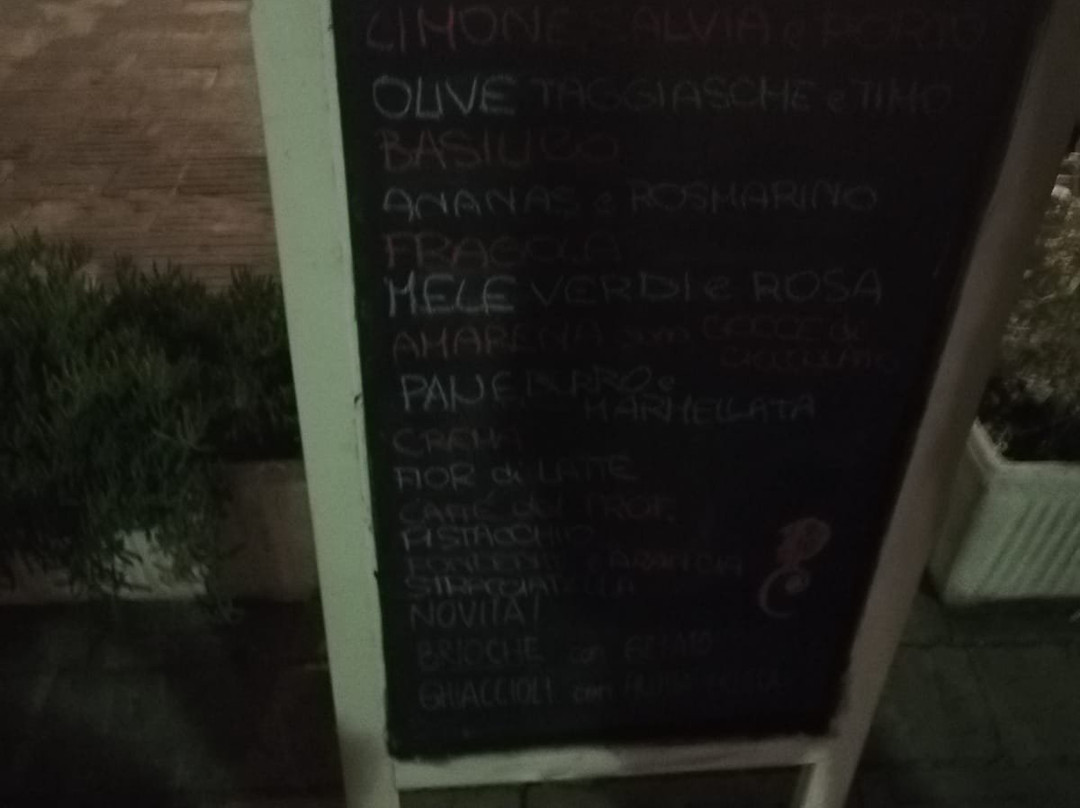 LIMONE SALVIA e PORTO
OLIVE TAGGIASCHE e TIMO
BASILICO
ANANAS e ROSMARINO
FRAGOLA
MELE VERDI e ROSA
AMARENA con GOCCE di
PANE BURRO e
MARMELLATA
CREMA
FIOR di LATTE
CAFFÈ del PROF.
PISTACCHIO
FONDENTE e ARANCIA
STRACCIATELLA
NOVITA!
BRIOCHE con GELATO
GHIACCIOLI con